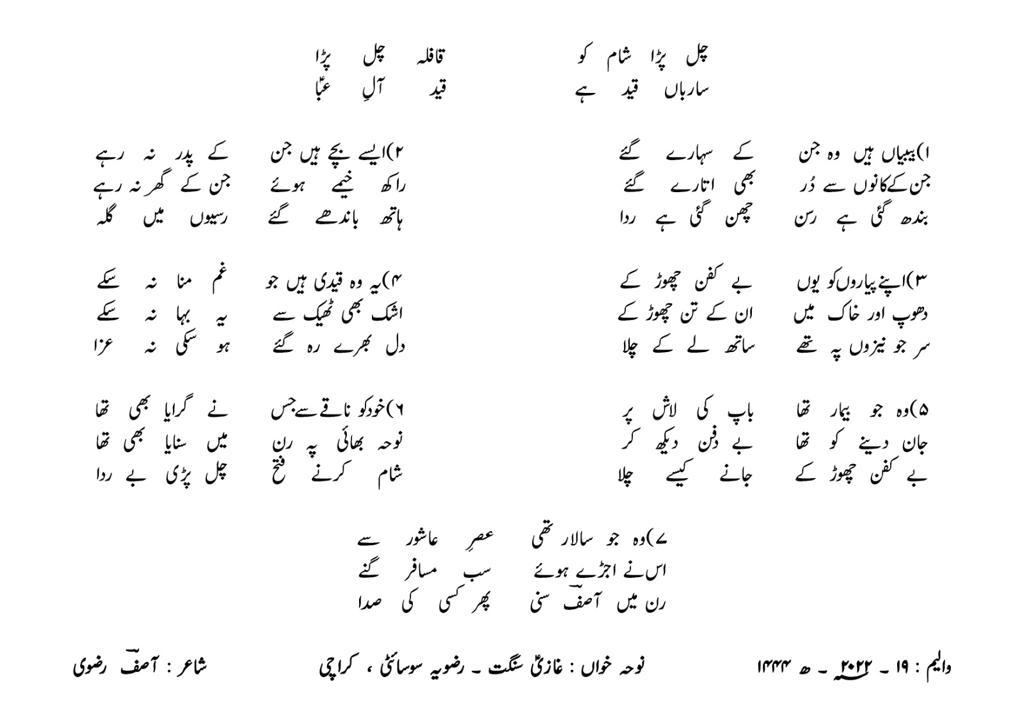 چل پڑا شام کو قافلہ چل پڑا
سارباں قید ہے قید آلِ عباؑ
۱)بیبیاں ہیں وہ جن کے سہارے گئے
جن کے کانوں سے دُر بھی اتارے گئے
بندھ گئی ہے رسن چھن گئی ہے ردا
۲)ایسے بچے ہیں جن کے پدر نہ رہے
راکھ خیمے ہوئے جن کے گھر نہ رہے
ہاتھ باندھے گئے رسیوں میں گلہ
۳)اپنے پیاروں کو یوں بے کفن چھوڑ کے
دھوپ اور خاک میں ان کے تن چھوڑ کے
سر جو نیزوں پہ تھے ساتھ لے کے چلا
۴)یہ وہ قیدی ہیں جو غم منا نہ سکے
اشک بھی ٹھیک سے یہ بہا نہ سکے
دل بھرے رہ گئے ہو سکی نہ عزا
۵)وہ جو بیمار تھا باپ کی لاش پر
جان دینے کو تھا بے دفن دیکھ کر
بے کفن چھوڑ کے جانے کیسے چلا
۶)خود کو ناقے سے جس نے گرایا بھی تھا
نوحہ بھائی پہ رن میں سنایا بھی تھا
شام کرنے فتح چل پڑی بے ردا
۷)وہ جو سالار تھی عصرِ عاشور سے
اس نے اجڑے ہوئے سب مسافر گنے
رن میں آصفؔ سنی پھر کسی کی صدا
والیم : ۱۹ ۔ ۲۰۲۲؁ ۔ ھ ۱۴۴۴ نوحہ خواں : غازیؑ سنگت ۔ رضویہ سوسائٹی ، کراچی شاعر : آصفؔ رضوی